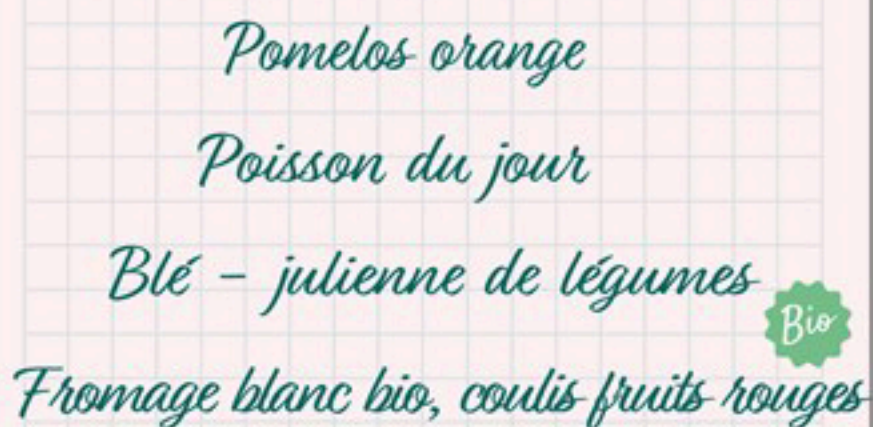 Pomelos orange
Poisson du jour
Blé - julienne de légumes
Bio
Fromage blanc bio, coulis fruits rouges